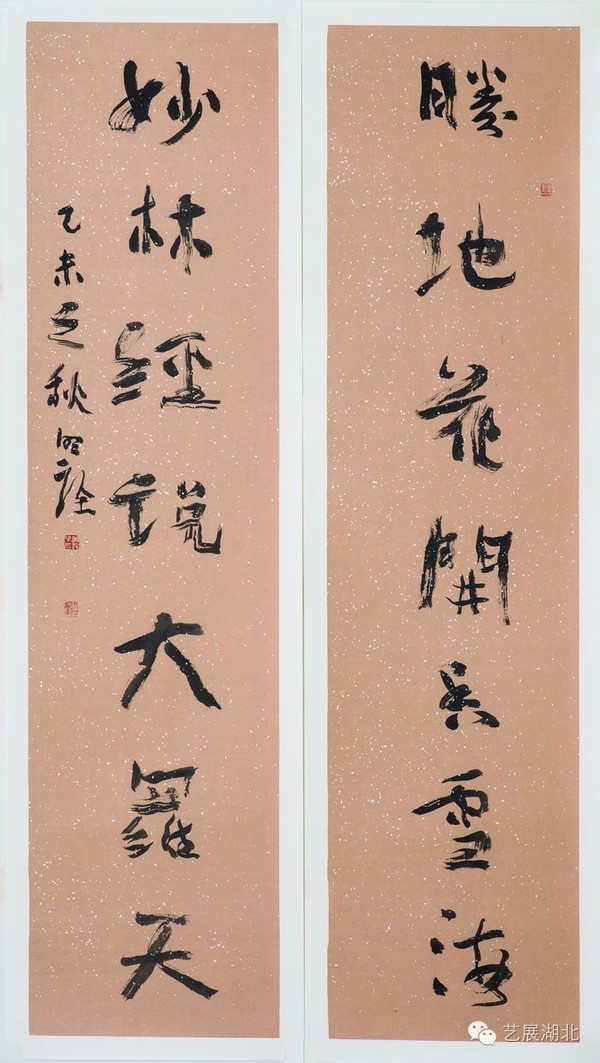 勝地花開香雪海
妙林經説大羅天
乙未之秋明詮
艺展湖北